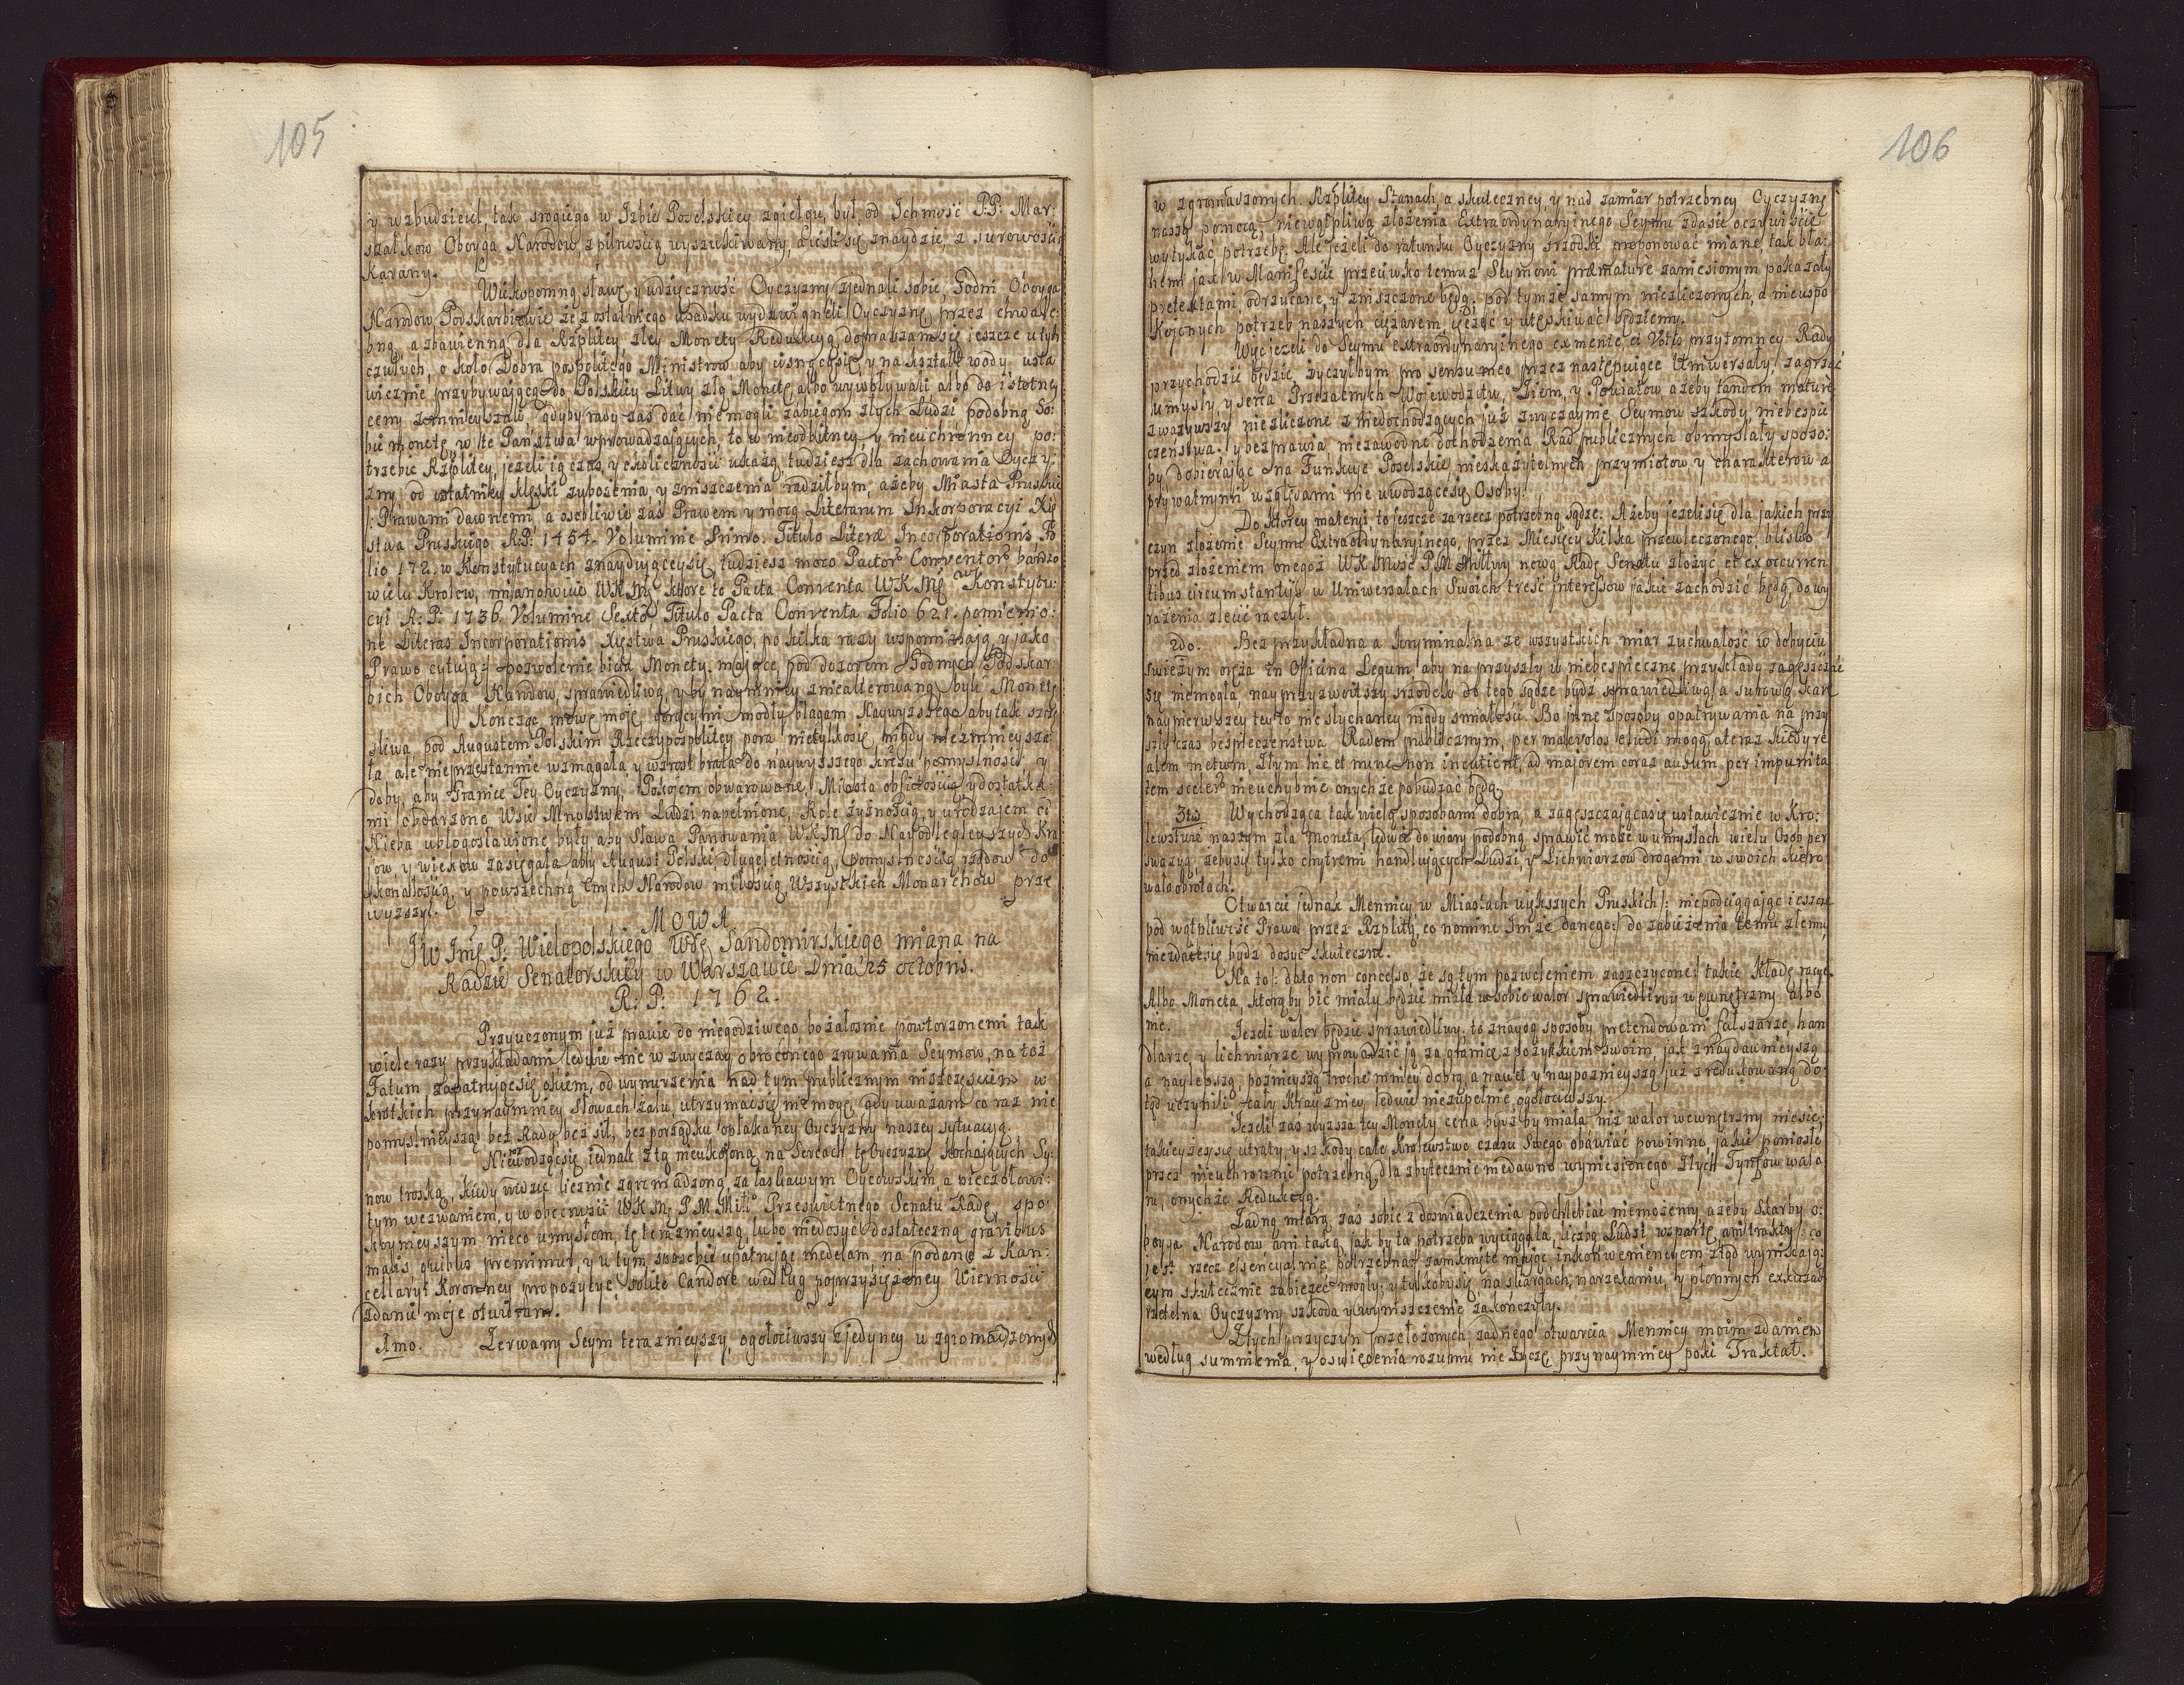 105
y wzbudziciel, tak srogiego w Izbie Poselskiey zgiełku, był od Ichmość P.P. Mar:
szałkow Oboyga Narodow, z pilnością wyszukiwany, a iesli się znaydzie, z surowością
karany.
Wiekopomną sławę y wdzięczność Oyczyzny zjednali sobie, Godni Oboyga
Narodow Podskarbiowie że z ostatniego upadku wydzwigneli Oyczyznę, przez chwale:
bną, a zbawienną dla Rzplitey, złey Monety Redukcyą, dopraszam się jeszcze u tych
czułych, o koło Dobra pospolitego Ministrow aby cisnącą się, y na kształt wody usta
wicznie przybywającą do Polskiey Litwy złą Monetę, albo wywoływali albo do istotney
ceny zmnieyszali, gdyby rady zaś dać nie mogli zabiegom złych Ludzi podobną So:
bie monetę w te Państwa wprowadzających, to w nieodbitney y nieuchronney po:
trzebie Rzplitey, jeżeli ią czas, y okoliczności ukażą, tudziesz dla zachowania Oyczy:
zny od ostatniey klęski zubożenia, y zniszczenia radziłbym, ażeby Miasta Pruskie
/: Prawami dawnemi, a osobliwie zaś Prawem y mocą Literarum Inkorporacyi Xię
stwa Pruskiego R:P: 1454. Volumine Primo. Titulo Literæ Incorporationis Fo
lio 172. w Konstytucyach znayduiącey się, tudziesz mocą Pactor Conventor bardzo
wielu Krolow, mianowicie WKMci ktore to Pacta Conventa WKMci w Konstytu:
cyi R: P: 1736. Volumine Sexto Titulo Pacta Conventa Folio 621. pomienio:
ne Literas Incorporationis Xięstwa Pruskiego, po kilka razy wspominaią, y jako
Prawo cytują :/ pozwolenie bicia Monety mające, pod dozorem Godnych Podskar:
bich Oboyga Narodow, sprawiedliwą, y by naymniey niealterowaną byli Monetę
Kończąc mowę moję, gorącymi modły błagam Naywyzszego aby tak szczę
śliwa pod Augustem Polskim Rzeczypospolitey pora nietylko się nigdy nie zmnieysza
ła ale nieprzestannie wzmagała, y wzrost brała do naywyższego kresu pomyślności y
doby, aby Granice Tey Oyczyzny, Pokojem obwarowane, Miasta obfitością y dostatka:
mi obdarzone Wsie Mnostwem Ludzi napełnione, Role żyznością, y urodzajem od
Nieba ubłogosławione były, aby sława Panowania WKMci do Nayodlegleyszych Kra
jow y wiekow zasięgała, aby August Polski długoletnością, Pomyslnością rządow do
skonałością, y powszechną Cnych Narodow miłością, Wszystkich Monarchow prze
wyższył.
MOWA
JW Jmę P: Wielopolskiego Wdę Sandomirskiego miana na
Radzie Senatorskiey w Warszawie Dnia 25 octobris.
R: P: 1762.
Przyuczonym już prawie do niegodziwego bo żałosnie powtorzonemi tak
wiele razy przykładami, ledwie nie w zwyczay obroconego zrywania Seymow, na toż
Fatum zapatrując się okiem, od wynurzenia nad tym publicznym nieszczęściem w
krotkich przynaymniey słowach żalu, utrzymac się nie mogę, gdy uważam co raz nie
pomyslnieyszą bez Rady bez sił, bez porządku opłakaney Oyczyzny naszey sytuacyą.
Niewodząc się jednak złą nieukojoną, na Sercach tę Oyczyznę kochających Sy:
now troską, kiedy widzę licznie zgromadzoną, za łaskawym Oycowskim a pieczołowi:
tym wezwaniem, y w obecności WKMę P M Miłł Przeswietnego Senatu Radę, spo
koynieyszym nieco umysłem, tę teraznieyszą, lubo niedosyć dostateczną gravibus
malis quibus premimur, y u tym sposobie upatruję medelam, na podane z Kan:
cellaryi Koronney propozycye solito Candore według poprzysiężoney Wierności
zdanie moje otwieram.
1mo. Zerwany Seym teraznieyszy, ogołociwszy z jedyney w zgromadzonych

106
w zgromadzonych. Rzplitey Stanach, a skuteczney y nad zamiar potrzebney Oyczyznę
naszą pomocą, niewątpliwą złożenia Extraordynaryinego Seymu zdaie oczywiście
wytykać potrzebę. Ale jeżeli do ratunku Oyczyzny srzodki proponować miane, tak bła:
hemi jak w Manifescie przeciwko temuz Seymowi præmature zaniesionym pokazały
pretextami, odrzucane, y zniszczone będą; pod tymże samym niezliczonych, a nieuspo
kojonych potrzeb naszych ciężarem, jęczeć y utęskiwać będziemy.
Więc jeżeli do Seymu extraordynaryinego ex mente et Votis przytomney Rady
przychodzić będzie życzyłbym pro sensu meo przez następuiące Uniwersały, zagrzać
umysły, y serca Przezacnych Wojewodztw, Ziem, y Powiatow ażeby tandem mature
zważywszy niezliczone z niedochodzących już zwyczaynie Seymow szkody, niebespie
czeństwa y bezprawia, niezawodne dochodzenia Rad publicznych obmyslały sposo:
by dobierając na Funkcye Poselskie, nieskażytelnych przymiotow y charakterow a
prywatnymi względami nie uwodzące się Osoby.
Do ktorey materyi to jeszcze za rzecz potrzebną sądzę. Ażeby jeżeli się dla jakich przy
czyn złożenie Seymu Extraordynaryinego, przez Miesięcy kilka przewleczonego, blisko
przed złożeniem onego z WKMość PM Miłłwy nową Radę Senatu złożyć, et ex occurren
tibus circumstantijs w Uniwersałach Swoich treść interessow jakie zachodzić będą, do wy
rażenia zlecić raczył.
2do. Bez przykładna a kryminalna ze wszystkich miar zuchwałość w dobyciu
swieżym oręża in Officina Legum, aby na przyszły w niebespieczne przykłady zagęszczać
się niemogła, nayprzyzwoitszy srzodek do tego sądzę bydz sprawiedliwą a surową kar
naypierwszey tey to nie słychaney nigdy smiałości. Bo inne sposoby opatrywania na przy
szły czas bespieczenstwa Radom publicznym, per malevolos eludi mogą, a teraz kiedy re
alem metum, złym hic et nunc non incutient, ad majorem coraz ausum, per impunita
tem sceler nieuchybnie onychże pobudzać będą.
3tio Wychodząca tak wielo sposobami dobra, a zagęszczająca się ustawicznie w Kro:
lewstwie naszym zła Moneta, ledwie do wiary podobną sprawić może w umysłach wielu Osob per
swazyą, żeby się tylko chytremi handlujących Ludzi, y Lichwiarzow drogami w swoich kiero
wała obrotach.
Otwarcie jednak Mennicy w Miastach większych Pruskich /: niepodciągając jeszcze
pod wątpliwość Prawa przez Rzplitę, co nomine Im że danego:/ do zabieżenia temu złemu,
niezdaie się bydz dosyć skuteczne.
Na to /: dato non concesso, że są tym pozwoleniem zaszczycone:/ takie kładę racye.
Albo Moneta, ktorąby bić miały, będzie miała w sobie walor sprawiedliwy wewnętrzny albo
nie. Jeżeli walor będzie sprawiedliwy, to znaydą sposoby pretendowani fałszarze, han
dlarze, y lichwiarze wyprowadzić ją za granicę z pożytkiem swoim, jak znaydawnieyszą
a naylepszą, poznieyszą trochę mniey dobrą, a nawet y naypoznieyszą już zredukowaną do
tąd uczynili cały Kray z niey ledwie niezupełnie ogołociwszy.
Jeżeli zaś wyższa tey Monety cena bydz by miała niż walor wewnętrzny niesie;
takieyżeyse utraty, y szkody całe Krolewstwo czasu Swego obawiać powinno, jakie poniosło
przez nieuchronnie potrzebną dla zbytecznie niedawno wyniesionego Złych Tynfow walo
ru, onychże Redukcyą.
Żadną miarą zaś sobie z doswiadczenia podchlebiać niemożemy ażeby Skarby o:
boyga Narodow ani taką, jak by ta potrzeba wyciągała, liczbą Ludzi wsparte, ani trakty /: co
jest rzecz essencyalnie potrzebna:/ zamknięte mając, inkonweniencyom ztąd wynikają:
cym skutecznie zabieżeć mogły; y tylkoby się, na skargach, narzekaniu, y płonnych exkuzach
rzetelna Oyczyzny szkoda y wyniszczenie zakończyły.
Z tych przyczyn przełożonych, żadnego otwarcia Mennicy moim zdaniem
według sumnienia, y oswiecenia rozumu nie życzę, przynaymniey poki Traktat.